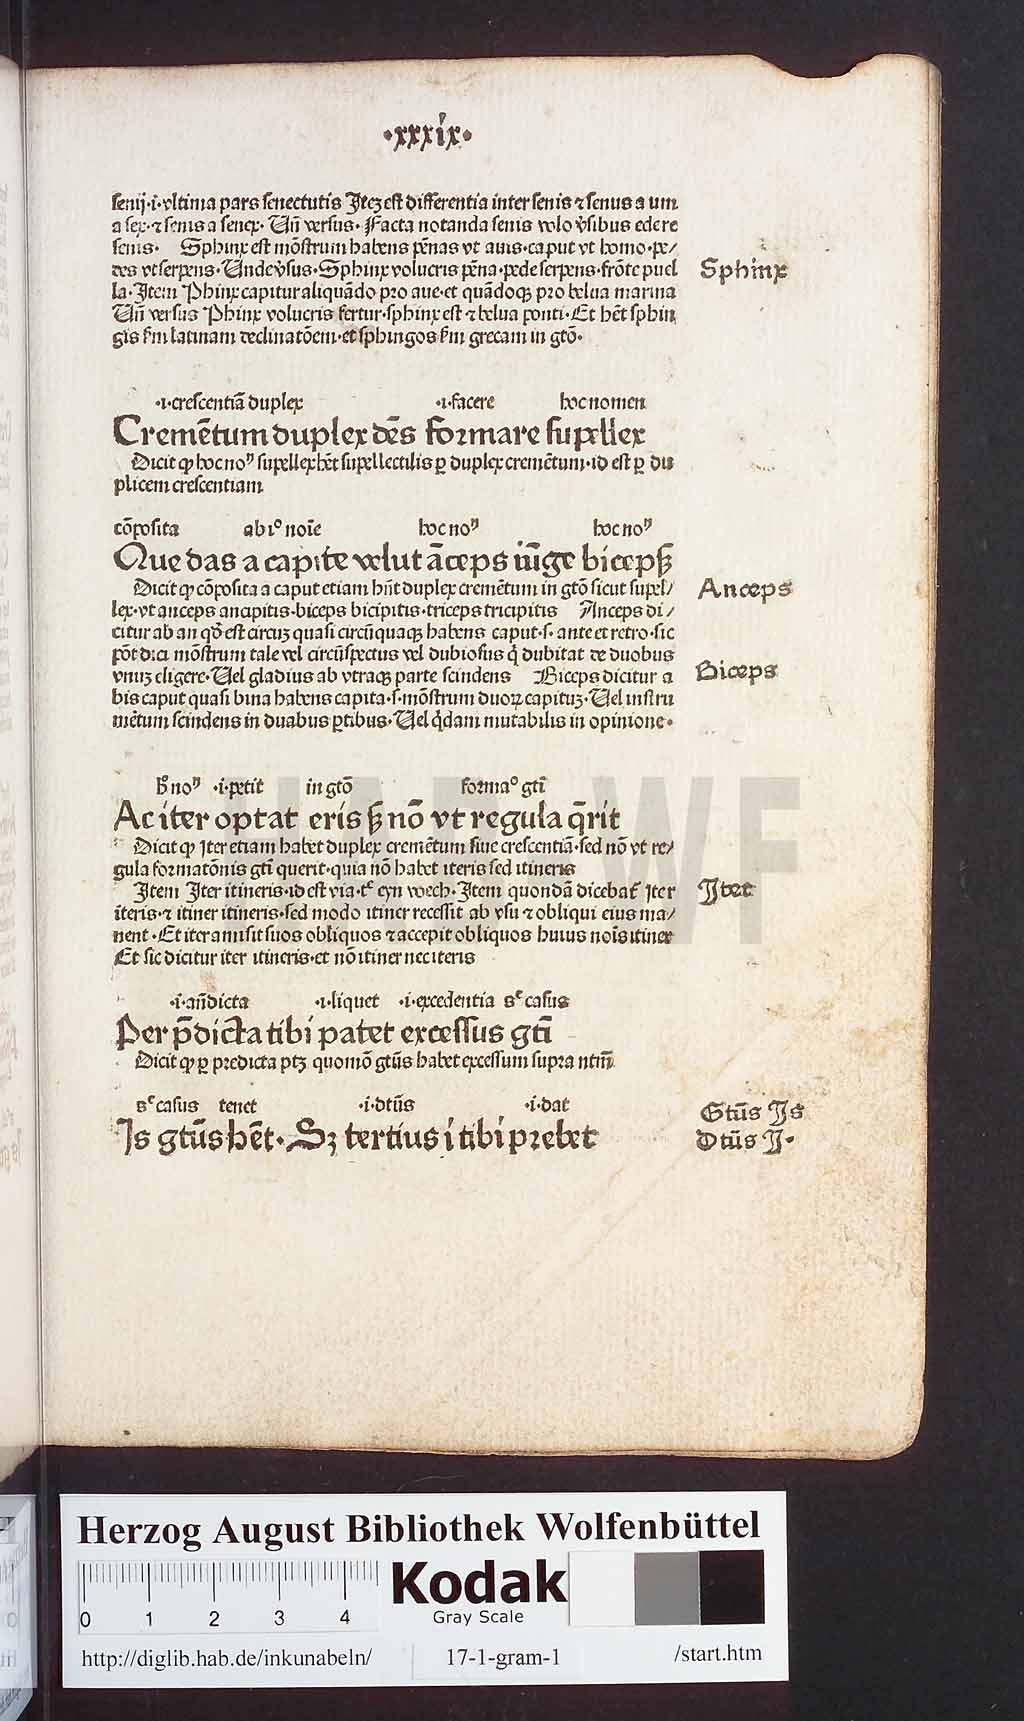 ·xxxix·
senij·i·vltima pars senectutis Jteꝫ est differentia inter senis ⁊ senus a um
a sex·⁊ senis a senex· Vñ versus· Facta notanda senis volo v̓sibus edere
senis· Sphinx est mōstrum habens pēnas vt auis·caput vt homo·pe/
des vt serpens·Unde v̓sus·Sphinx volucris pēna·pede serpens·frōte puel
la·Item Phinx capitur aliquādo pro aue·et quādoqꝫ pro belua marina
Vñ versus Phinx volucris fertur·sphinx est ⁊ belua ponti·Et hēt sphin
gis ẜm latinam declinatōem·et sphingos ẜm grecam in gtō·
Sphinx
·i·crescentiā duplex ·i·facere hoc nomen
Cremētum duplex dēs formare supellex
Dicit ꝙ hoc noꝰ supellex hēt supellectilis ꝑ duplex cremētum·id est ꝑ du
plicem crescentiam
cōposita ab i° noīe hoc noꝰ hoc noꝰ
Que das a capite velut āceps iūge bicepsꝫ
Dicit ꝙ cōposita a caput etiam hn̄t duplex cremētum in gtō sicut supel/
lex·vt anceps ancipitis·biceps bicipitis·triceps tricipitis Anceps di/
citur ab an qd̓ est circuꝫ quasi circūquaqꝫ habens caput·s·ante et retro·sic
pōt dici mōstrum tale vel circūspectus vel dubiosus q̄ dubitat de duobus
vnuꝫ eligere·Vel gladius ab vtraqꝫ parte scindens Biceps dicitur a
bis caput quasi bina habens capita·s·mōstrum duoꝝ capituꝫ·Vel instru
mētum scindens in duabus ꝑtibus·Vel q̄dam mutabilis in opinione·
Anceps
Biceps
h̓ noꝰ ·i·petit in gtō forma° gti
Ac iter optat eris ꝫ nō vt regula q̄rit
Dicit ꝙ Jter etiam habet duplex cremētum siue crescentiā·sed nō vt re/
gula formatōnis gti querit·quia nō habet iteris sed itineris
Jtem Jter itineris·id est via·tͨ eyn wech·Item quondā dicebat̉ Jter
iteris·⁊ itiner itineris·sed modo itiner recessit ab vsu ⁊ obliqui eius ma/
nent·Et iter amisit suos obliquos ⁊ accepit obliquos huius noīs itiner
Et sic dicitur iter itineris·et nō itiner nec iteris
Jter
·i·an̄dicta ·i·liquet ·i·excedentia sͨ casus
Per p̄dicta tibi patet excessus gti
Dicit ꝙ ꝑ predicta ptꝫ quomō gtūs habet excessum supra ntm̄
sͨ casus tenet ·i·dtūs ·i·dat
Js gtūs hēt·Sꝫ tertius i tibi prebet
Gtūs Js
Dtūs J·
HAB WF
Herzog August Bibliothek Wolfenbüttel
0 1 2 3 4
Kodak
Gray Scale
http://diglib.hab.de/inkunabeln/ 17-1-gram-1 /start.htm